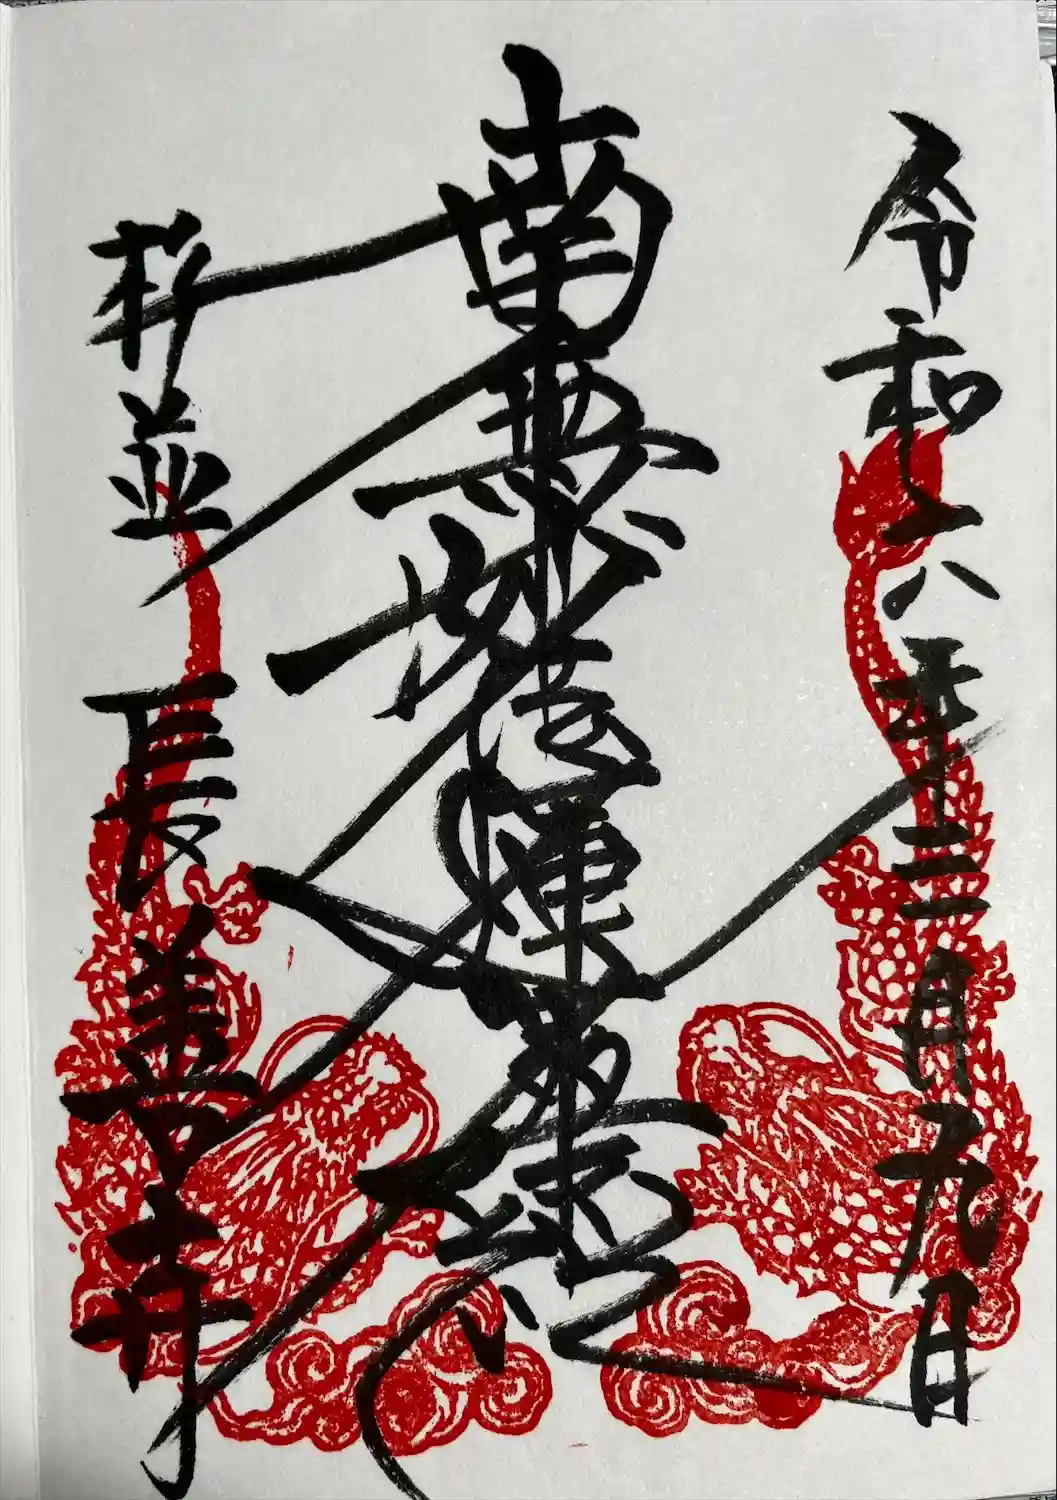 令和六年三月九日
南無妙法蓮華経
杉並 長善寺